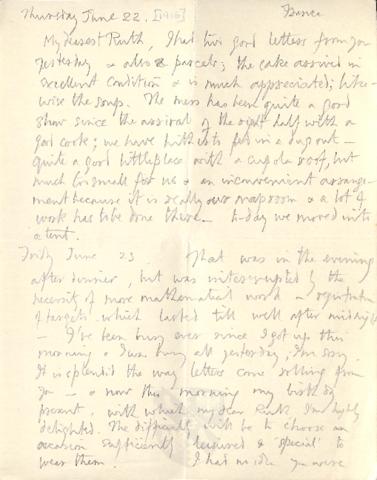 Thursday June 22. [1916] France
My dearest Ruth, I had two good letters from you
yesterday & also 2 parcels; the cake arrived in
excellent condition & is much appreciated; like-
wise the soap. The mess has been quite a good
show since the arrival of the right half with a
good cook; we have hitherto fed in a dug out —
quite a good little place with a cupola roof, but
much too small for us & an inconvenient arrange-
ment because it is really our map room & a lot of
work has to be done there. To-day we moved into
a tent.
Friday June 23 That was in the evening
after dinner, but was interrupted by the
necessity of more mathematical work &
of targets which lasted till well after midnight
— I've been busy ever since I got up this
morning & I was busy all yesterday, I'm sorry.
It is splendid the way letters come rolling from
you — & now this morning my birthday
present, with which my dear Ruth I'm highly
delighted. The difficulty will be to choose an
occasion sufficiently leisured & 'special' to
wear them. I had no idea you were